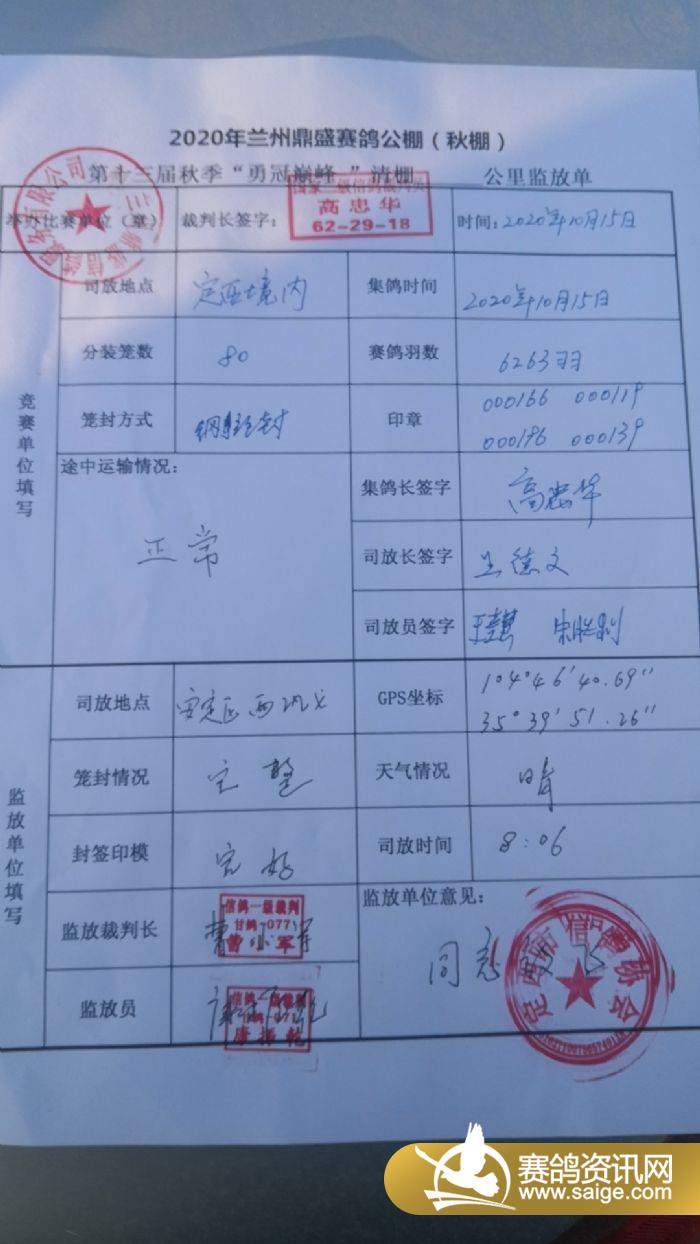 2020年兰州鼎盛赛鸽公棚（秋棚）
第十三届秋季“勇冠巅峰 ”清棚 公里监放单
举办比赛单位（章） 裁判长签字： 时间：2020年10月15日
高忠华
62-29-18
竞赛单位填写
司放地点 定西境内 集鸽时间 2020年10月15日
分装笼数 80 赛鸽羽数 6263羽
笼封方式 印章 000166 000119
000196 000139
途中运输情况： 正常
集鸽长签字 高忠华
司放长签字 王德文
司放员签字
监放单位填写
司放地点 安定区 GPS坐标 104°46′40.69″
35°39′51.26″
笼封情况 完整 天气情况 晴
封签印模 完好 司放时间 8:06
监放裁判长 信鸽一级裁判
甘鸽-077
曹小军
监放员
监放单位意见：
同意放飞
定西市信鸽协会
赛鸽资讯网
www.saige.com